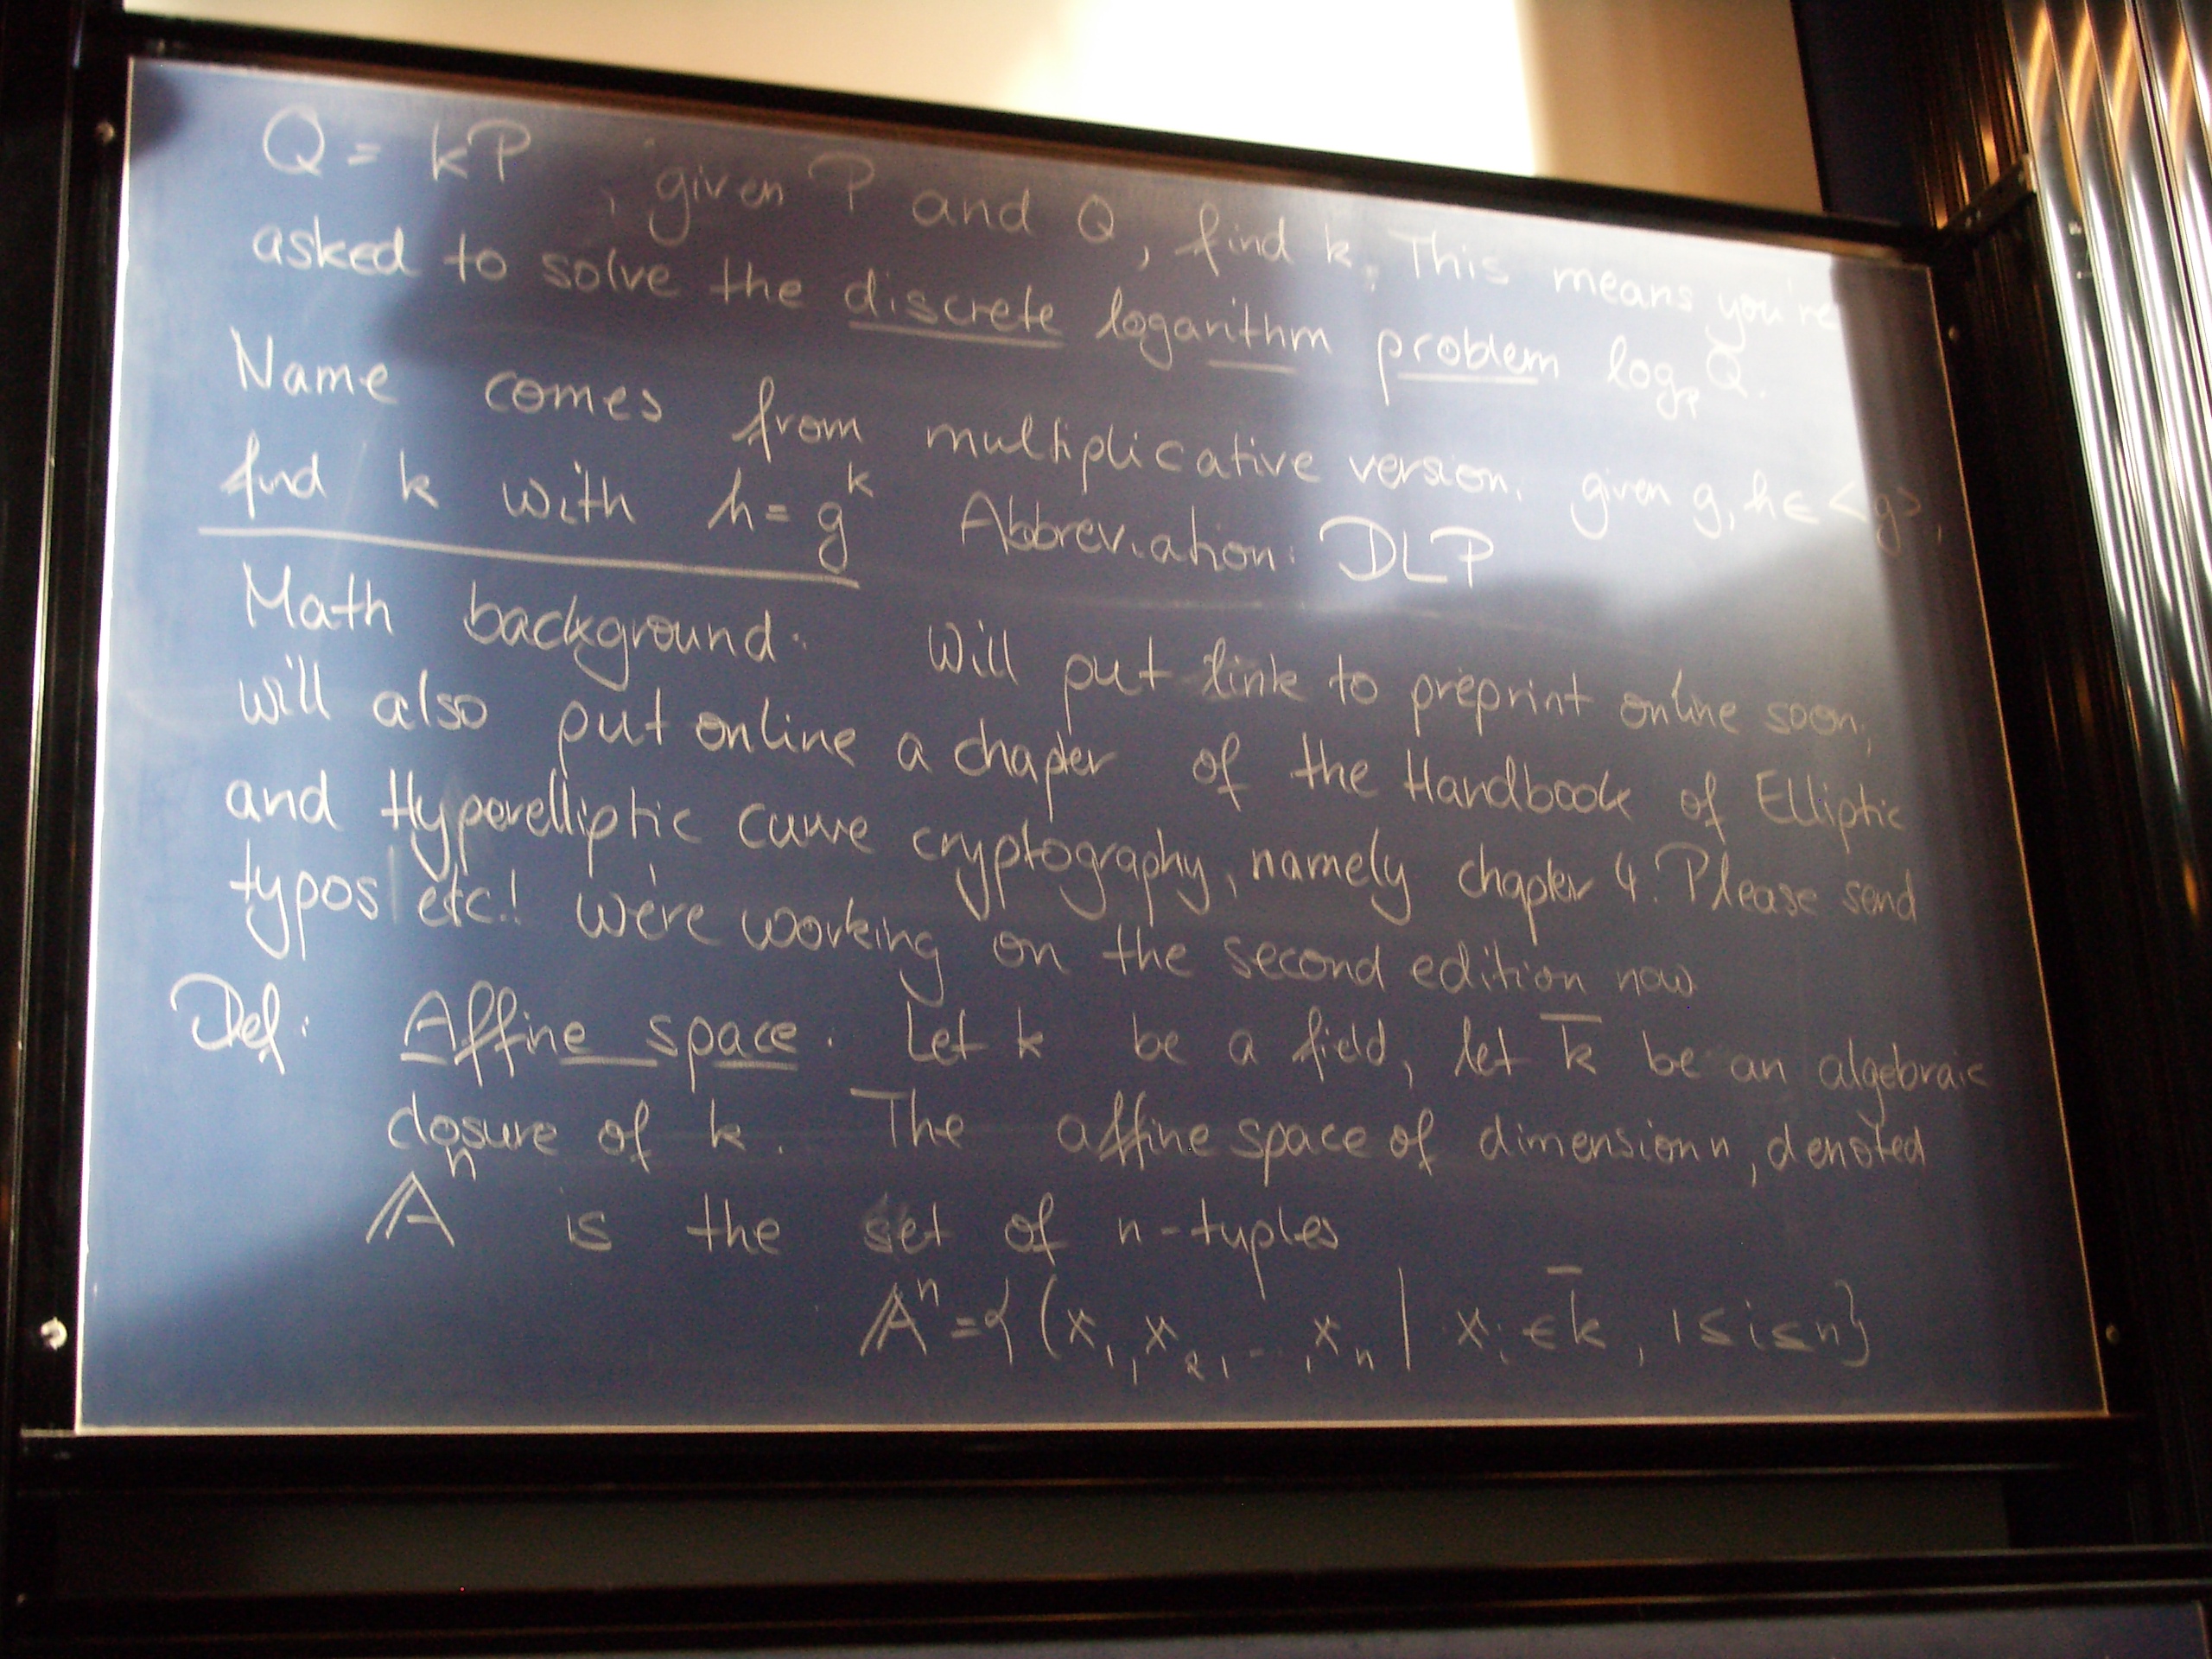 Q = kP , given P and Q, find k. This means you're
asked to solve the discrete logarithm problem log_P Q.
Name comes from multiplicative version. given g, h ∈ <g>,
find k with h = g^k Abbreviation: DLP
Math background: Will put link to preprint online soon;
will also put online a chapter of the Handbook of Elliptic
and Hyperelliptic curve cryptography, namely chapter 4. Please send
typos etc.! We're working on the second edition now
Def: Affine space. Let k be a field, let k̄ be an algebraic
closure of k. The affine space of dimension n, denoted
𝔸^n is the set of n-tuples
𝔸^n = {(x_1, x_2, .., x_n | x_i ∈ k̄, 1 ≤ i ≤ n}